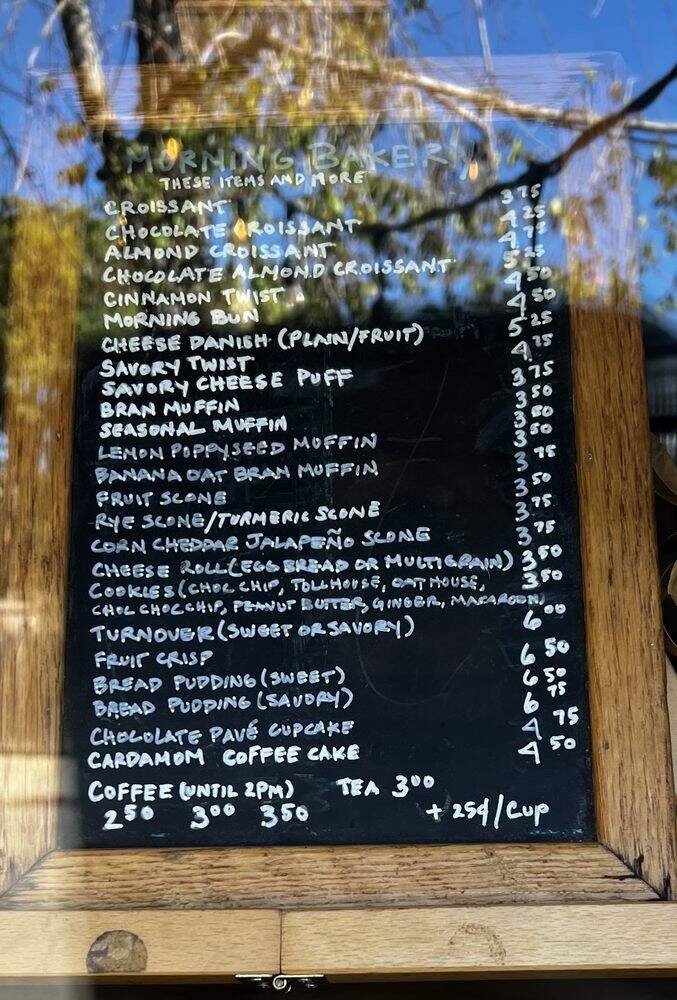 MORNING BAKERY
THESE ITEMS AND MORE
CROISSANT 3 75
CHOCOLATE CROISSANT 4 25
ALMOND CROISSANT 4 75
CHOCOLATE ALMOND CROISSANT 5 25
CINNAMON TWIST 4 50
MORNING BUN 4 50
CHEESE DANISH (PLAIN/FRUIT) 5 25
SAVORY TWIST 4 75
SAVORY CHEESE PUFF 3 75
BRAN MUFFIN 3 50
SEASONAL MUFFIN 3 50
LEMON POPPYSEED MUFFIN 3 50
BANANA OAT BRAN MUFFIN 3 75
FRUIT SCONE 3 50
RYE SCONE/TURMERIC SCONE 3 75
CORN CHEDDAR JALAPEÑO SCONE 3 75
CHEESE ROLL (EGG BREAD OR MULTIGRAIN) 3 50
COOKIES (CHOC CHIP, TOLLHOUSE, OATHOUSE, 3 50
CHOC CHOC CHIP, PEANUT BUTTER, GINGER, MACAROON)
TURNOVER (SWEET OR SAVORY) 6 00
FRUIT CRISP 6 50
BREAD PUDDING (SWEET) 6 50
BREAD PUDDING (SAVORY) 6 75
CHOCOLATE PAVÉ CUPCAKE 4 75
CARDAMOM COFFEE CAKE 4 50
COFFEE (UNTIL 2PM) TEA 3 00
2 50 3 00 3 50 + 25¢/CUP